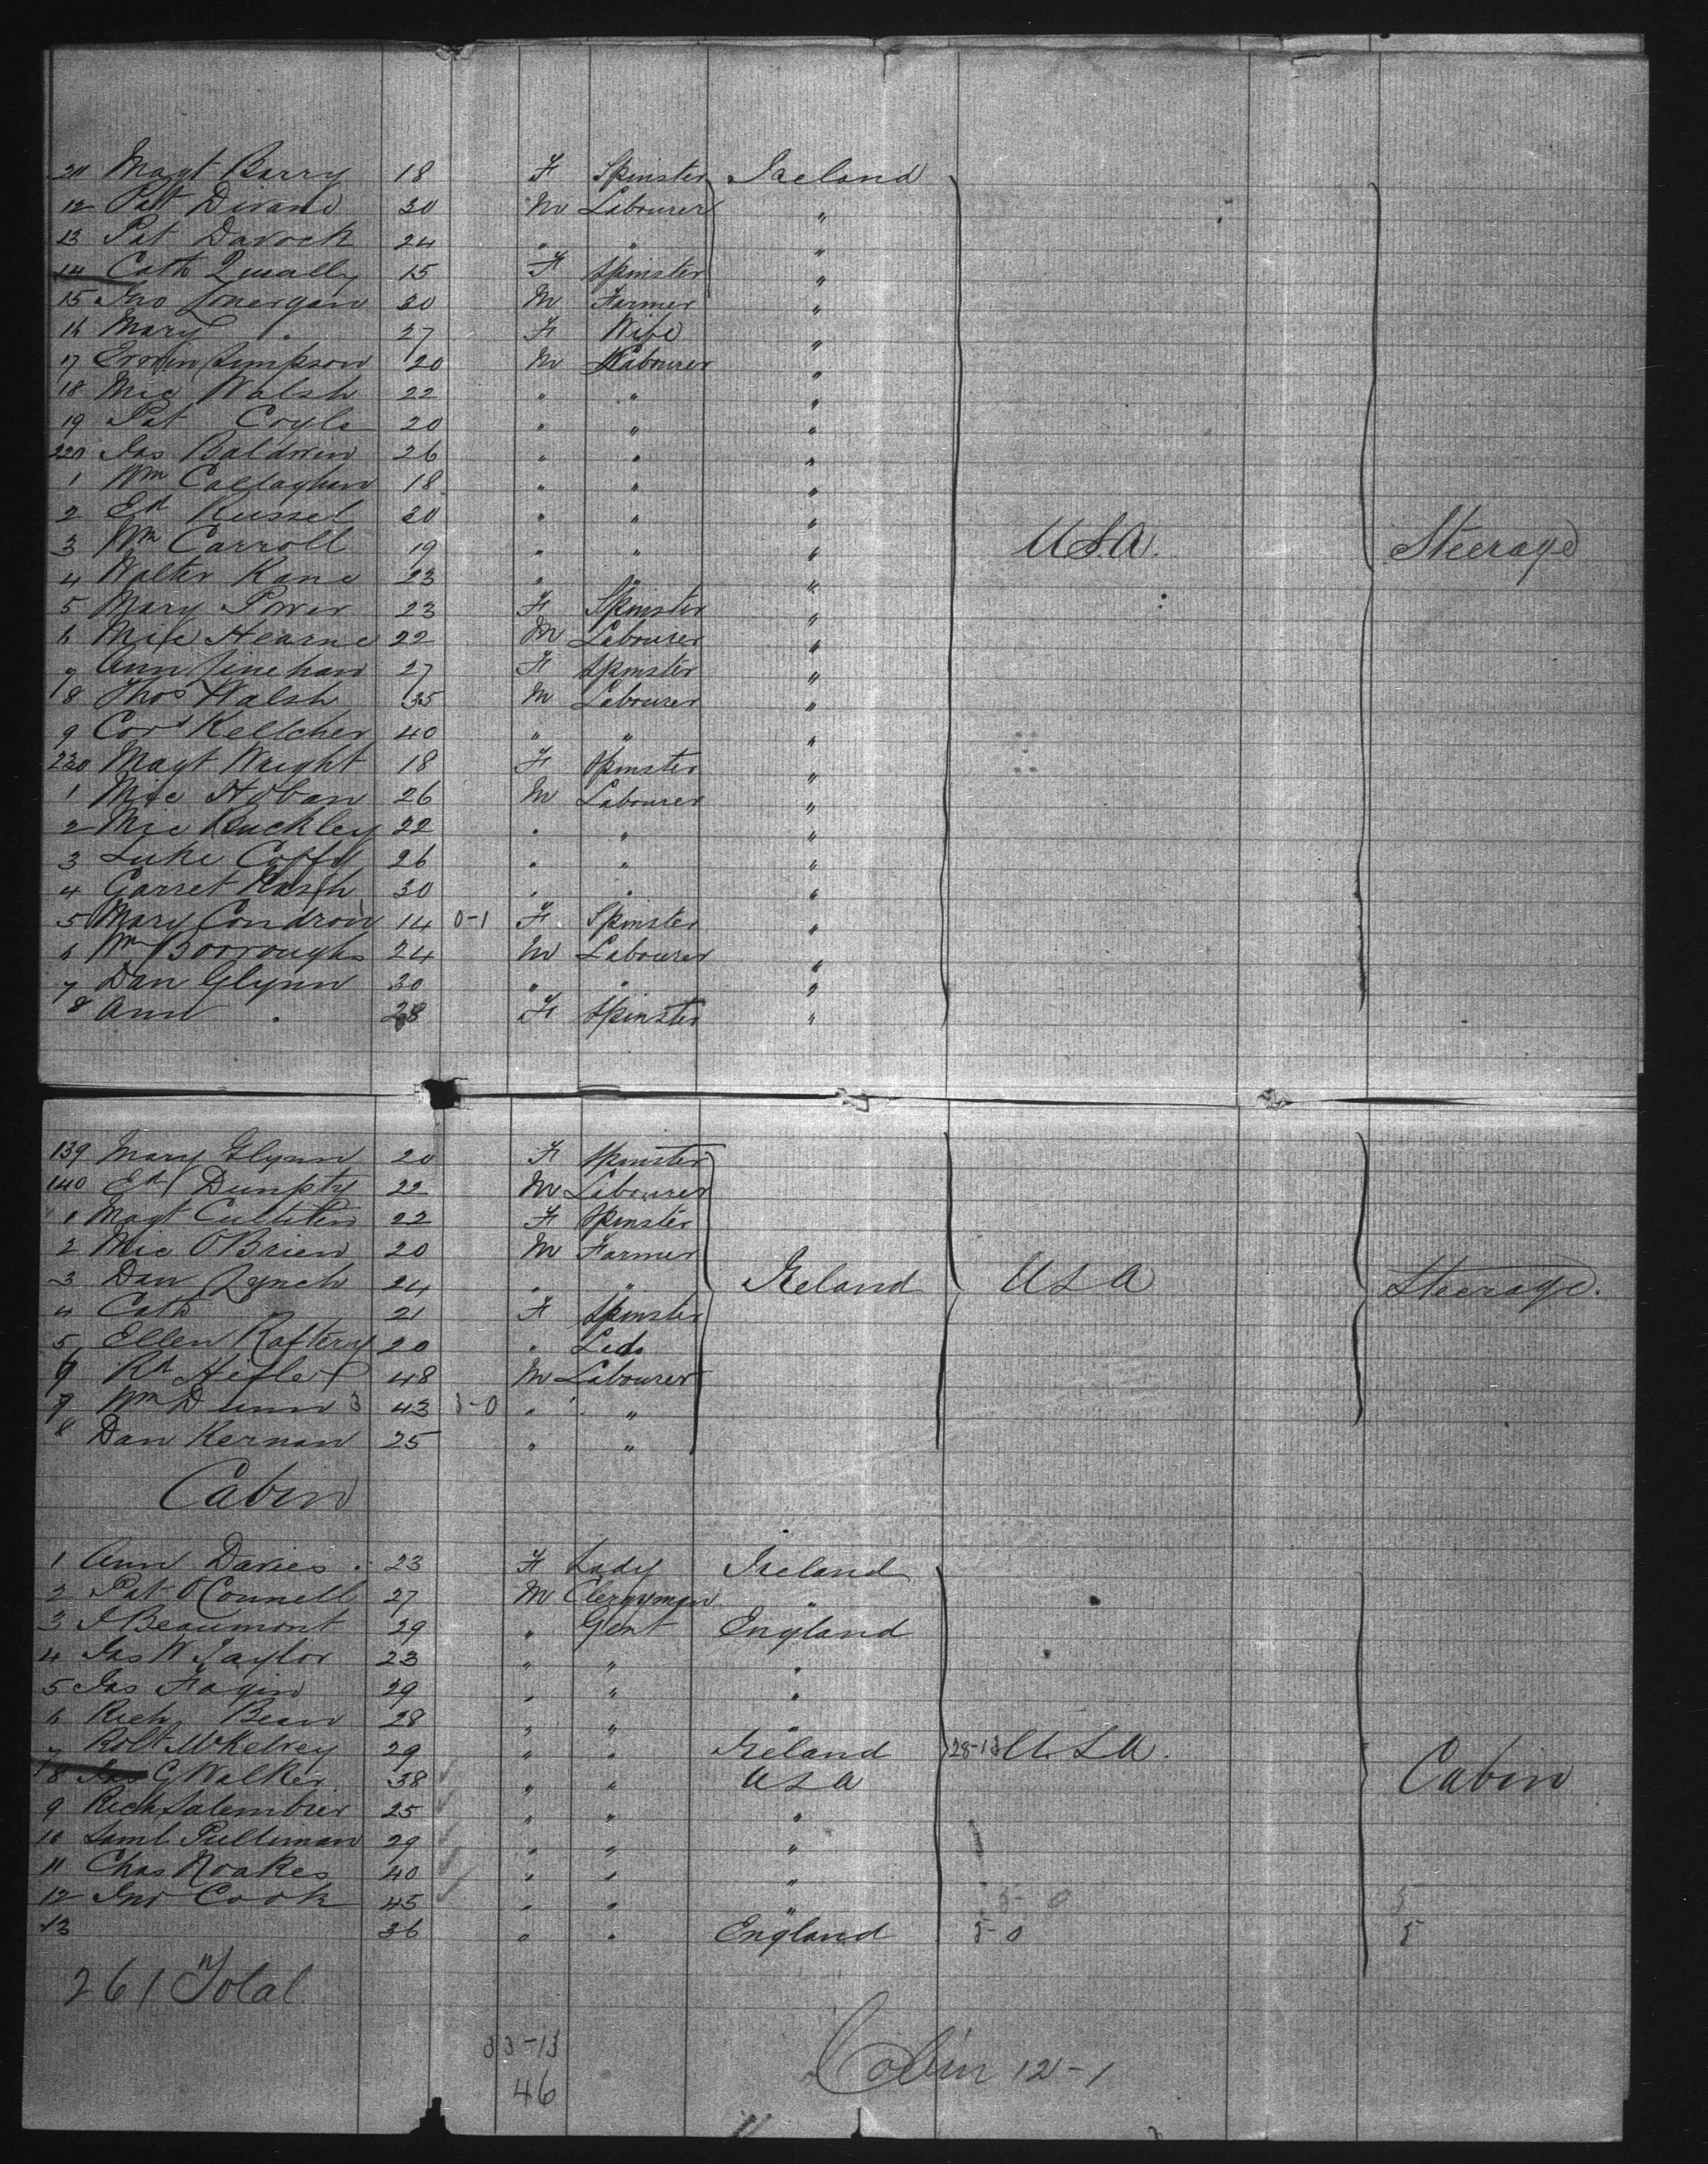 211 Magt Barry 18 F Spinster Ireland
12 Pat Divane 30 M Labourer "
13 Pat Davock 24 " " "
14 Cath Qually 15 F Spinster "
15 Jno Lonergan 30 M Farmer "
16 Mary " 27 F Wife "
17 Erwin Simpson 20 M Labourer "
18 Mic Walsh 22 " " "
19 Pat Coyle 20 " " "
220 Jas Baldwin 26 " " "
1 Wm Callaghan 18 " " "
2 Ed Russel 30 " " "
3 Wm Carroll 19 " " " USA. Steerage
4 Walter Kane 23 " " "
5 Mary Power 23 F Spinster "
6 Mic Hearne 22 M Labourer "
7 Ann Linehan 27 F Spinster "
8 Thos Walsh 35 M Labourer "
9 Cors Kellcher 40 " " "
230 Magt Wright 18 F Spinster "
1 Mic Hoban 26 M Labourer "
2 Mic Buckley 22 " " "
3 Luke Coffy 26 " " "
4 Garret 30 " " "
5 Mary Condron 14 0-1 F Spinster "
6 Wm Borroughs 24 M Labourer "
7 Dan Glynn 30 " " "
8 Ann " 28 F Spinster "
139 Mary Glynn 20 F Spinster
140 Ed Dunphy 22 M Labourer
1 Magt 22 F Spinster
2 Mic O'Brien 20 M Farmer
3 Dan Lynch 24 " " Ireland USA Steerage.
4 Cath " 21 F Spinster
5 Ellen Raftery 20 "
6 Rd 48 M Labourer
7 Wm Dunn 3 43 3-0 " "
8 Dan Kernan 25 " "
Cabin
1 Ann Davies 23 F Lady Ireland
2 Pat O'Connell 27 M Clergyman "
3 J Beaumont 29 " Gent England
4 Jas W Taylor 23 " " "
5 Jas Fagin 29 " " "
6 Rich Bean 28 " " "
7 Robt McKelvey 29 " " Ireland 28-13 USA. Cabin
8 Jas G Walker 38 " " USA
9 Rich Salembier 25 " " "
10 Saml Pulliman 29 " " "
11 Chas Noakes 40 " " "
12 Jno Cook 45 " " " 5-0 5
13 36 " " England 5-0 5
261 Total
33-13
46
Cabin 12-1